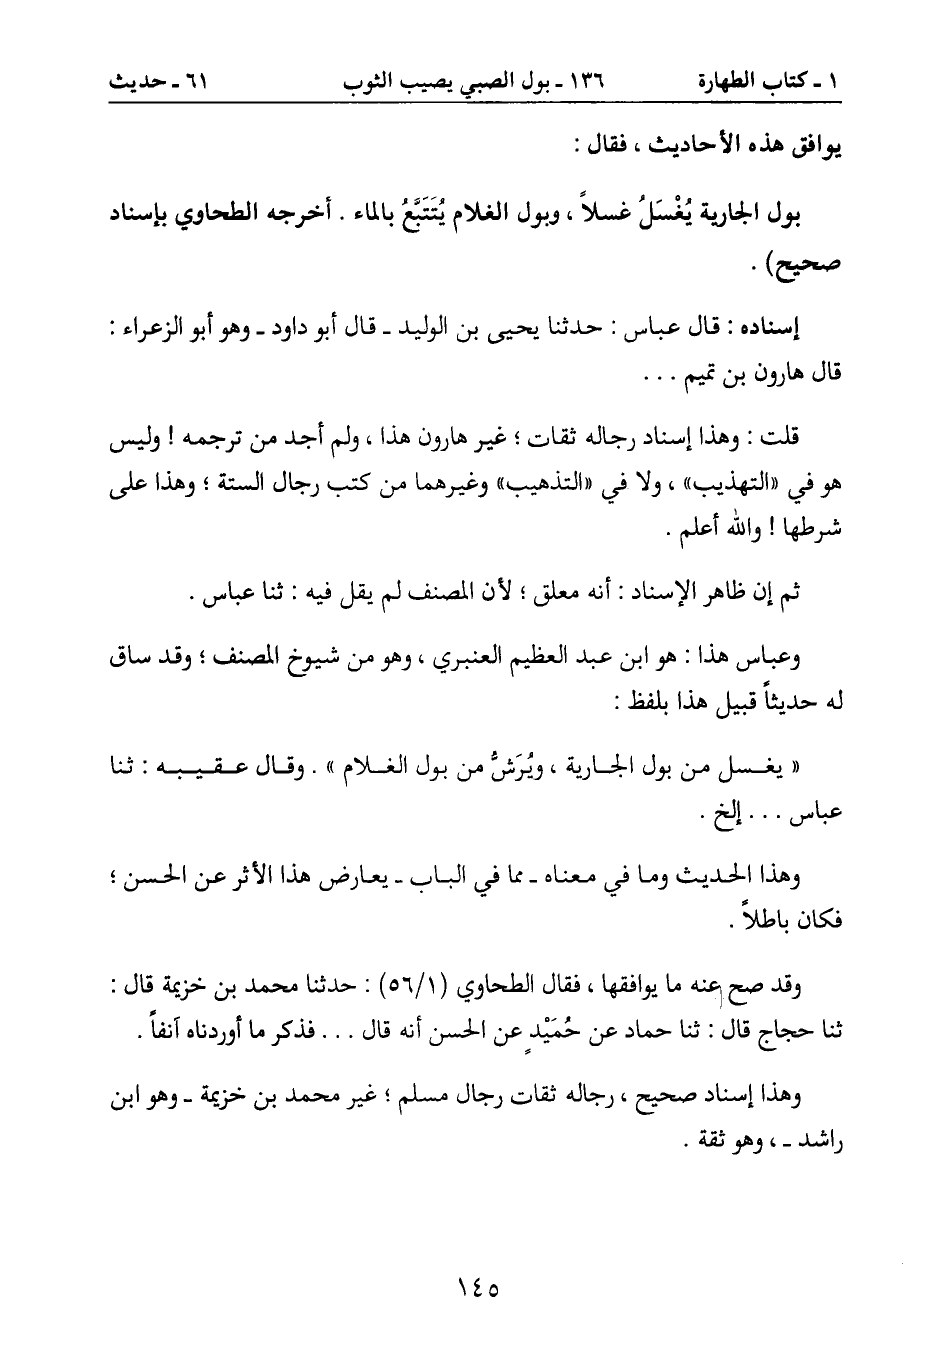 ١ ـ كتاب الطهارة ١٣٦ ـ بول الصبي يصيب الثوب ٦١ ـ حديث
يوافق هذه الأحاديث ، فقال :
بول الجارية يُغْسَلُ غسلاً ، وبول الغلام يُتَتَبَّعُ بالماء . أخرجه الطحاوي بإسناد
صحيح) .
إسناده : قال عباس : حدثنا يحيى بن الوليد ـ قال أبو داود ـ وهو أبو الزعراء :
قال هارون بن تميم . . .
قلت : وهذا إسناد رجاله ثقات ؛ غير هارون هذا ، ولم أجد من ترجمه ! وليس
هو في «التهذيب» ، ولا في «التذهيب» وغيرهما من كتب رجال الستة ؛ وهذا على
شرطها ! والله أعلم .
ثم إن ظاهر الإسناد : أنه معلق ؛ لأن المصنف لم يقل فيه : ثنا عباس .
وعباس هذا : هو ابن عبد العظيم العنبري ، وهو من شيوخ المصنف ؛ وقد ساق
له حديثاً قبيل هذا بلفظ :
« يغسل من بول الجارية ، ويُرَشُّ من بول الغلام » . وقال عقيبه : ثنا
عباس . . . إلخ .
وهذا الحديث وما في معناه ـ مما في الباب ـ يعارض هذا الأثر عن الحسن ؛
فكان باطلاً .
وقد صح عنه ما يوافقها ، فقال الطحاوي (٥٦/١) : حدثنا محمد بن خزيمة قال :
ثنا حجاج قال : ثنا حماد عن حُمَيْدٍ عن الحسن أنه قال . . . فذكر ما أوردناه آنفاً .
وهذا إسناد صحيح ، رجاله ثقات رجال مسلم ؛ غير محمد بن خزيمة ـ وهو ابن
راشد ـ ، وهو ثقة .
١٤٥